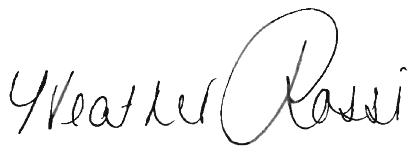 Heather Rossi